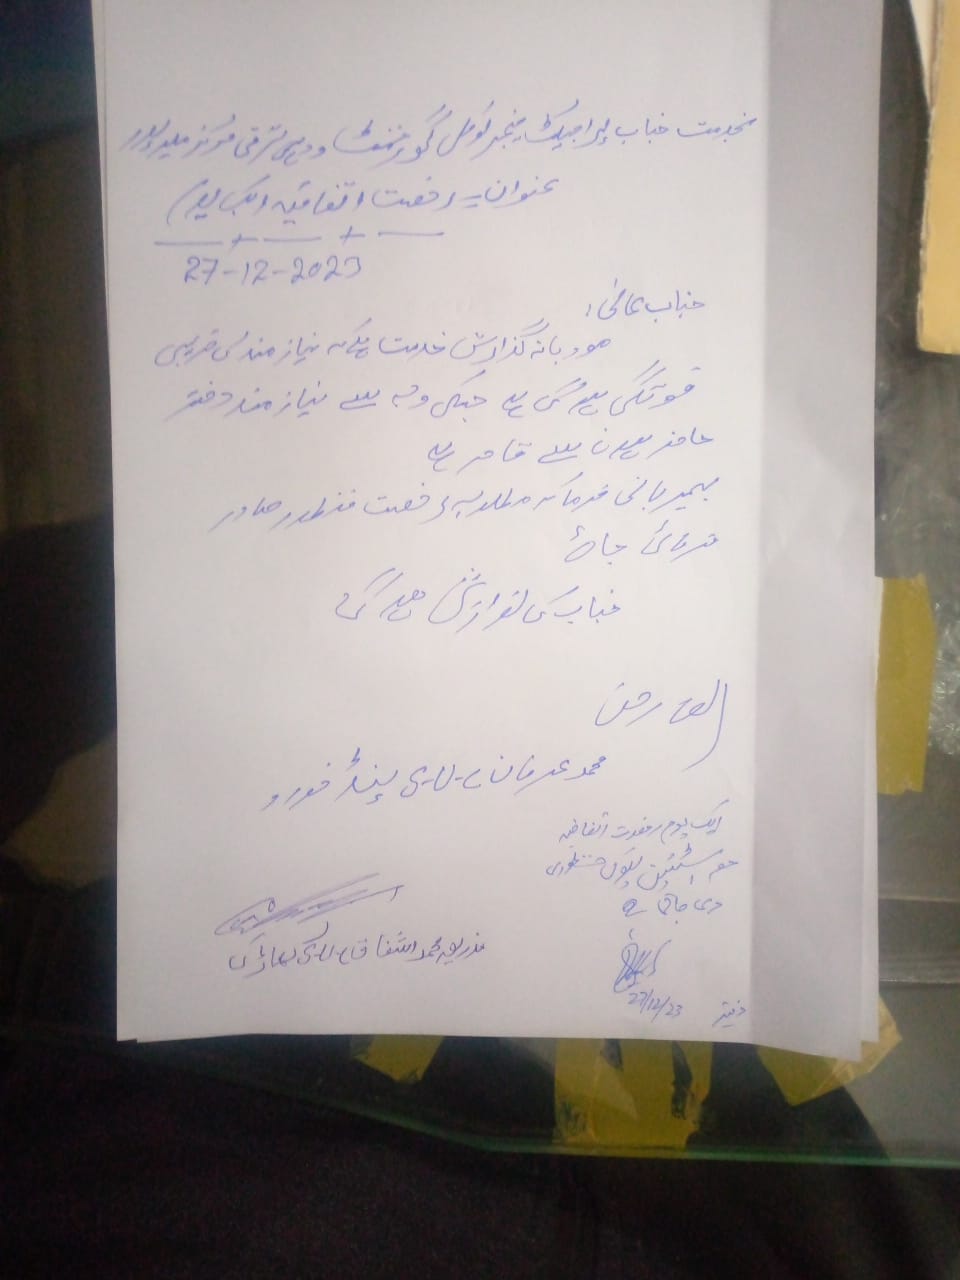 بخدمت جناب پراجیکٹ منیجر لوکل گورنمنٹ و دیہی ترقی مرکز میرپور
عنوان:۔ رخصت اتفاقیہ ایک یوم
27-12-2023
جناب عالی!
مودبانہ گذارش خدمت ہیکہ نیازمند کی قریبی
فوتگی ہو گئی ہے جسکی وجہ سے نیازمند دفتر
حاضر ہونے سے قاصر ہے
مہربانی فرما کر مطلوبہ رخصت منظور صادر
فرمائی جائے
جناب کی نوازش ہو گی
العارض
محمد عرفان
ایک یوم رخصت اتفاقیہ
منظوری
دی جاتی ہے
27/12/23
دفتر
بذریعہ محمد اشفاق